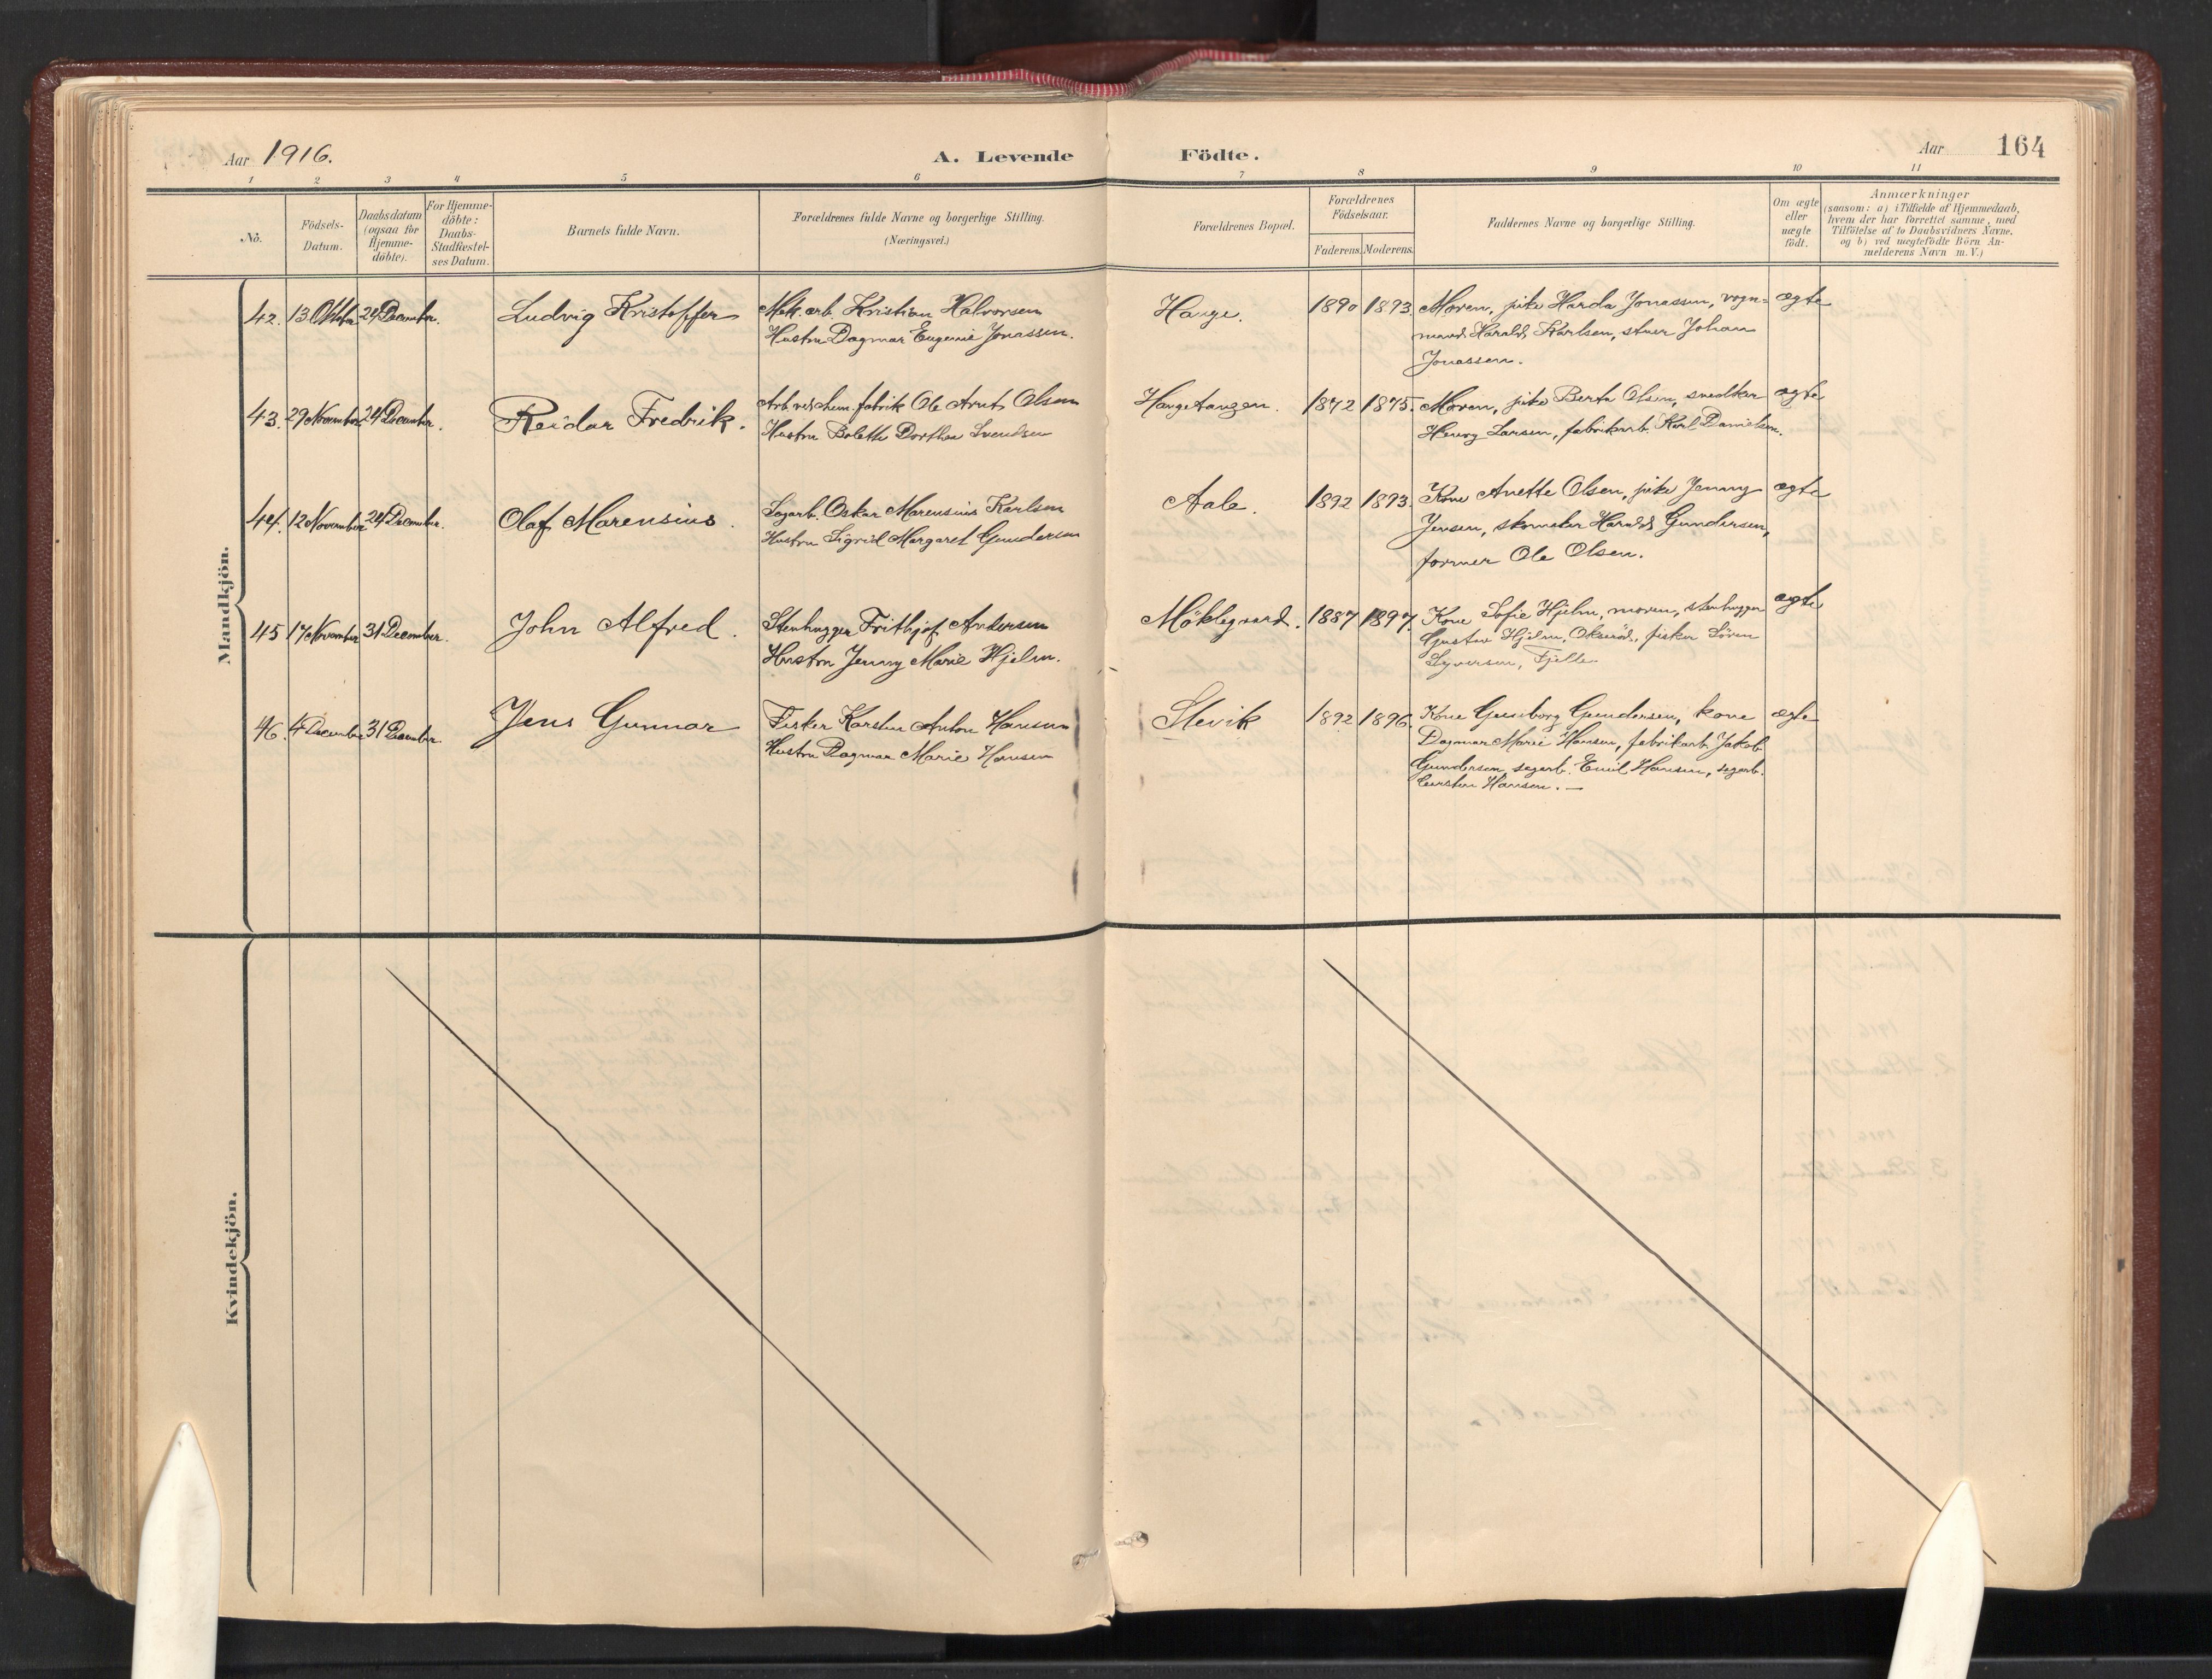 Aar 1916.
A. Levende Födte.
Aar 164
1 2 3 4 5 6 7 8 9 10 11
No.
Födsels-
Datum.
Daabsdatum
(ogsaa for
Hjemme-
döbte).
For Hjemme-
döbte:
Daabs-
Stadfæstel-
ses Datum.
Barnets fulde Navn.
Forældrenes fulde Navne og borgerlige Stilling.
(Næringsvei.)
Forældrenes Bopæl.
Forældrenes
Födselsaar.
Faderens. Moderens.
Faddernes Navne og borgerlige Stilling.
Om ægte
eller
uægte
födt.
Anmærkninger
(saasom: a) i Tilfælde af Hjemmedaab,
hvem der har forrettet samme, med
Tilföielse af to Daabsvidners Navne,
og b) ved uægtefödte Börn An-
melderens Navn m.V.)
Mandkjön.
42. 13 Oktbr 24 December. Ludvig Kristoffer
Mek. arb. Kristian Halvorsen
Hustru Dagmar Eugenie Jonassen.
Hauge. 1890 1893.
Moren, pike Harda Jonassen, vogn-
mand Harald Karlsen, stuer Johan
Jonassen.
ægte
43. 29 November 24 December. Reidar Fredrik.
Arb. ved chem. fabrik Ole Arnt Olsen
Hustru Bolette Dorthea Svendsen
Haugetangen. 1872 1875.
Moren, pike Berta Olsen, snedker
Henry Larsen, fabrikarb. Karl Danielsen.
ægte
44. 12 November 24 December. Olaf Marensius.
Sagarb. Oskar Marensius Karlsen
Hustru Sigrid Margaret Gundersen
Aale. 1892 1893.
Kone Anette Olsen, pike Jenny
Jensen, skomaker Harald Gundersen,
former Ole Olsen.
ægte
45 17 November 31 December. John Alfred.
Stenhugger Frithjof Andersen
Hustru Jenny Marie Hjelm.
Möklegaard. 1887 1897.
Kone Sofie Hjelm, moren, stenhugger
Gustav Hjelm, Okseröd, fisker Sören
Syversen, Fjelle
ægte
46. 4 December 31 December. Jens Gunnar
Fisker Karsten Anton Hansen
Hustru Dagmar Marie Hansen
Slevik 1892 1896.
Kone Gunborg Gundersen, kone
Dagmar Marie Hansen, fabrikarb. Jakob
Gundersen, sagarb. Emil Hansen, sagarb.
Karsten Hansen. —
ægte
Kvindekjön.